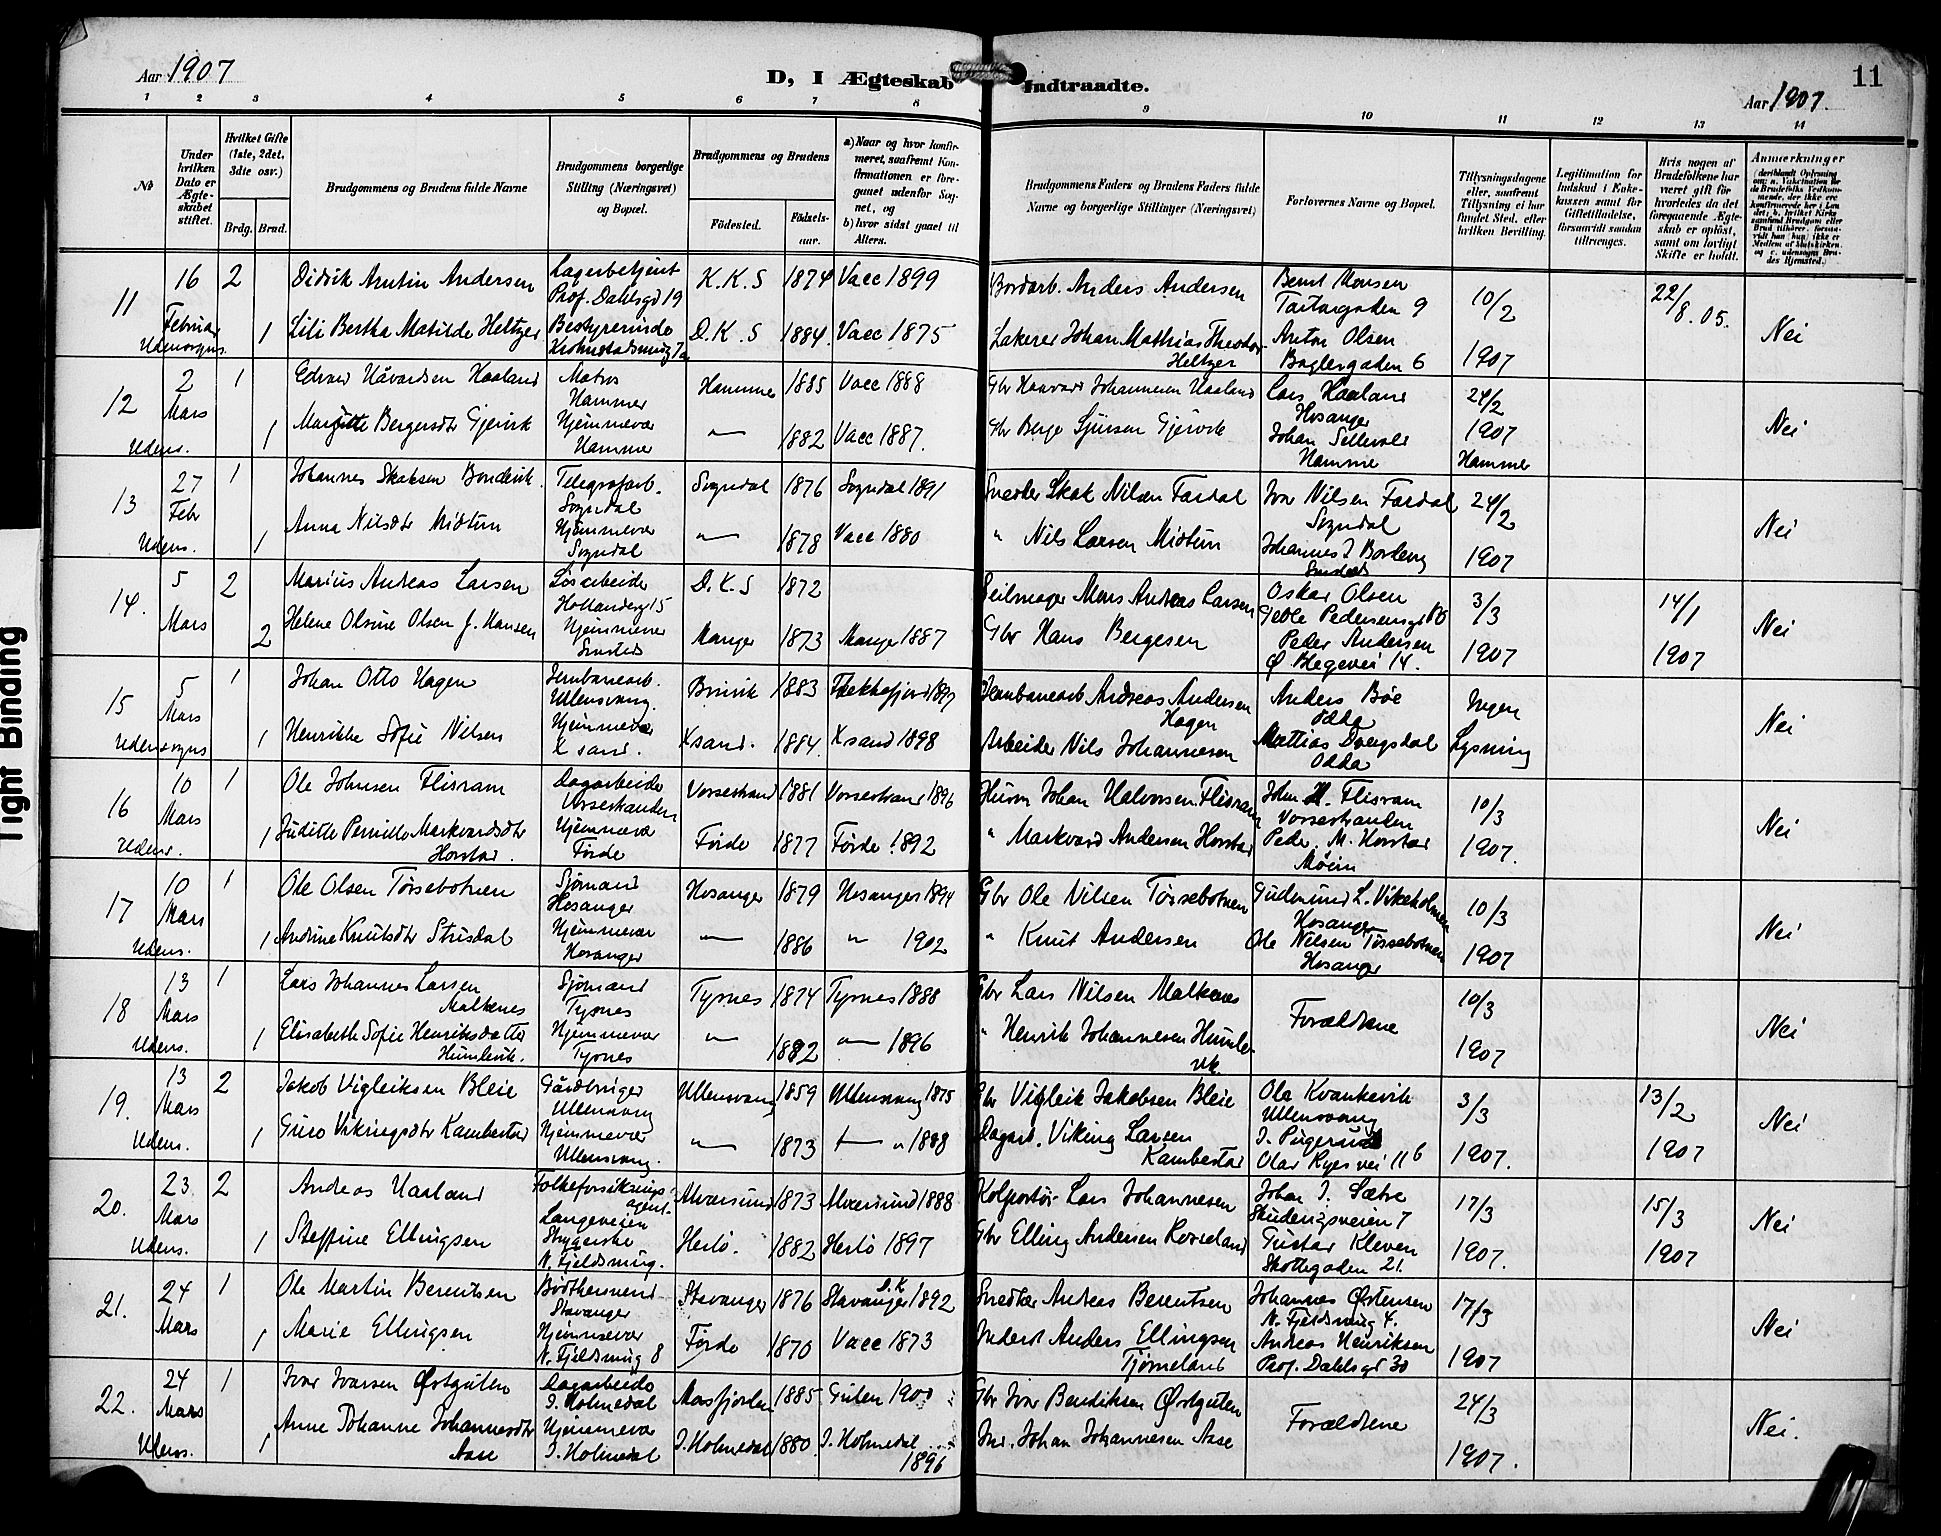 Aar 1907
D, I Ægteskab Indtraadte.
11
Aar 1907.
1 2 3 4 5 6 7 8 9 10 11 12 13 14
№
Under hvilken Dato er Ægteskabet stiftet.
Hvilket Gifte (1ste, 2det, 3die osv.)
Brdg. Brud.
Brudgommens og Brudens fulde Navne
Brudgommens borgerlige Stilling (Næringsvei) og Bopæl.
Brudgommens og Brudens
Fødested. Fødselsaar.
a) Naar og hvor konfirmeret, saafremt Konfirmationen er foregaaet udenfor Sognet, og
b) hvor sidst gaaet til Alters.
Brudgommens Faders og Brudens Faders fulde Navne og borgerlige Stillinger (Næringsvei)
Forlovernes Navne og Bopæl.
Tillysningsdagene eller, saafremt Tillysning ei har fundet Sted, efter hvilken Bevilling.
Legitimation for Indskud i Enkekassen samt for Giftetilladelse, forsaavidt saadan tiltrænges.
Hvis nogen af Brudefolkene har været gift før hvorledes da det foregaaende Ægteskab er opløst, samt om lovligt Skifte er holdt.
Anmerkninger
11 16 Februar Udensogns. 2
Didrik Anutin Andersen Lagerbetjent Prof. Dahlsgd 19 K.K.S 1874 Vacc 1899 Bordarb. Anders Andersen Bernt Monsen Tartargaden 9 10/2 22/8.05.
1 Lili Bertha Matilde Heltzer Bestyrerinde D.K.S 1884 Vacc 1875 Lakerer Johan Mathias Theodor Heltzer Anton Olsen Baglergaden 6 1907 Nei
12 2 Mars Udens. 1
Edvard Håvardsen Haaland Matros Hammer Hammer 1885 Vacc 1888 Gbr Haavard Johannesen Haaland Lars Haaland Hosanger 24/2
1 Bergersdtr Gjervik Hjemmevær Hammer — 1882 Vacc 1887. Gbr Berge Sjursen Gjervik Johan Hamme 1907 Hammer Nei
13 27 Febr Udens. 1
Johannes Skaksen Telegrafarb. Sogndal Sogndal 1876 Sogndal 1891 Snedker Skak Nilsen Fardal Ivar Nilsen Fardal Sogndal 24/2
1 Anna Nilsdtr Midtun Hjemmevær Sogndal — 1878 Vacc 1880 " Nils Larsen Midtun Johannes J 1907 Nei
14. 5 Mars 2
Marius Andreas Larsen Løsarbeider Hollenderg 15 D.K.S 1872 Seilmager Mons Andreas Larsen Oskar Olsen 3/3 14/1
2 Helene Olsine Olsen f. Hansen Hjemmevær Manger 1873 Manger 1887 Gbr Hans Bergesen Peder Andersen Ø. Blegevei 14. 1907 1907 Nei
15 5 Mars Udensogns 1
Johan Otto Hagen Jernbanearb. Ullensvang. 1883 Jernbanearb Andreas Andersen Hagen Anders Bøe Odda Ingen
1 Henrikke Sofie Nilsen Hjemmevær X sand. Xsand. 1884. Xsand 1898 Arbeider Nils Johannesen Mattias Odda Lysning Nei
16 10 Mars Udens. 1
Ole Johnsen Flisram Dagarbeider Vossestranden Vossestrand 1881 Vossestrand 1896 Husm Johan Halvorsen Flisram John H. Flisram Vossestranden 10/3
1 Juditte Pernille Markvardsdtr Horstad. Hjemmevær Førde Førde 1877 Førde 1892 " Markvard Andersen Horstad Peder M. Horstad 1907. Nei
17 10 Mars Udens. 1
Ole Olsen Tørsebotnen Sjømand Hosanger Hosanger 1879 Hosanger 1894 Gbr Ole Nilsen Tørsebotnen Gudmund L. Vikeholmen Hosanger 10/3
1 Andrine Knutsdtr Strisdal Hjemmevær Hosanger — 1886 " 1902 " Knut Andersen Ole Nilsen Tørsebotnen Hosanger 1907 Nei
18 13 Mars Udens. 1
Lars Johannes Larsen Malkenes Sjømand Tysnes Tysnes 1874 Tysnes 1888 Gbr Lars Nilsen Malkenes Forældrene 10/3
1 Elisabeth Sofie Henriksdatter Humlevik. Hjemmevær Tysnes — 1882 — 1896 " Henrik Johannesen Humlevik. 1907 Nei
19. 13 Mars Udens. 2
Jakob Vigleiksen Bleie Gårdbruger Ullensvang Ullensvang 1859 Ullensvang 1875 Gbr Vigleik Jakobsen Bleie Ole Kvankevik Ullensvang 3/3 13/2
1 Guro Vikingsdtr Kambestad Hjemmevær Ullensvang. — 1873 — " 1888 Dagarb. Viking Larsen Kambestad Olav Ryes vei 11 b 1907. 1907 Nei
20. 23 Mars Udens. 2
Andreas Haaland Folkeforsikringsagent. Langeveien Alversund 1873 Alversund 1888 Kolportør Lars Johannesen Johan J. Sætre Skuderigsveien 7 17/3 15/3
1 Steffine Ellingsen N. Fjeldsmug. Herlö. 1882 Herlö 1897 Gbr Elling Andersen Rosseland Gustav Kleven Skottegaden 21. 1907. 1907 Nei
21. 24 Mars 1
Ole Martin Berentsen Bødkersvend Stavanger Stavanger 1876 Stavanger D.K 1892 Snedker Andreas Berentsen Johannes Østensen N. Fjeldsmug 4. 17/3
1 Marie Ellingsen Hjemmevær N. Fjeldsmug 8 Førde 1870 Vacc 1873 Inderst Anders Ellingsen Tjørneland Andreas Henriksen Prof. Dahlsgt 30 1907 Nei
22. 24 Mars Udens. 1
Ivar Ivarsen Østguten Dagarbeider I. Holmedal Masfjorden 1885 Gulen 1900 Gbr Ivar Bendiksen Østguten Forældrene 24/3
1 Anne Johanne Johannesdtr Aase Hjemmevær I. Holmedal I. Holmedal 1880. I. Holmedal 1896 Ind. Johan Johannesen Aase 1907. Nei.
Tight Binding